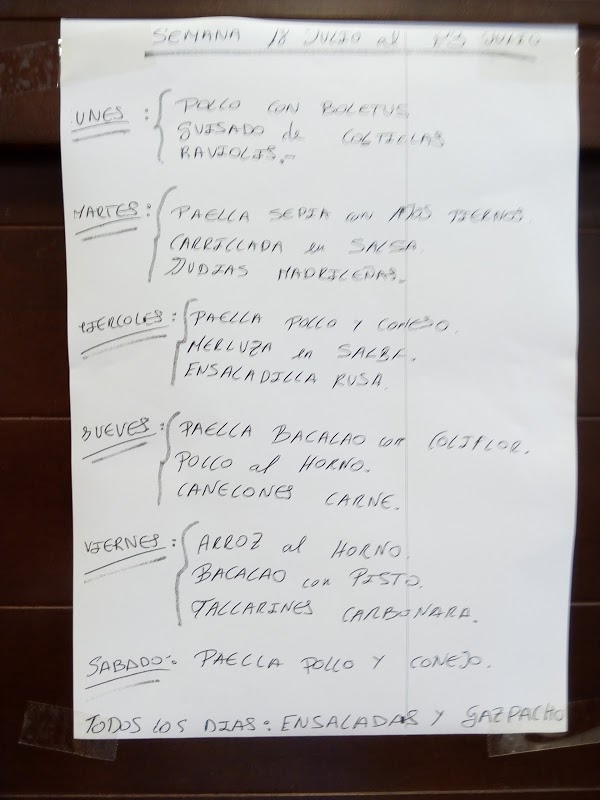 SEMANA 18 JULIO al 23 JULIO
LUNES: POLLO con BOLETUS
GUISADO de COSTILLAS
RAVIOLIS.-
MARTES: PAELLA SEPIA con AJOS TIERNOS.
CARRILLADA en SALSA.
JUDIAS MADRILEÑAS.
MIERCOLES: PAELLA POLLO Y CONEJO.
MERLUZA en SALSA.
ENSALADILLA RUSA.
JUEVES: PAELLA BACALAO con COLIFLOR.
POLLO al HORNO.
CANELONES CARNE.
VIERNES: ARROZ al HORNO.
BACALAO con PISTO.
TALLARINES CARBONARA.
SABADO: PAELLA POLLO Y CONEJO.
TODOS LOS DIAS: ENSALADAS Y GAZPACHO